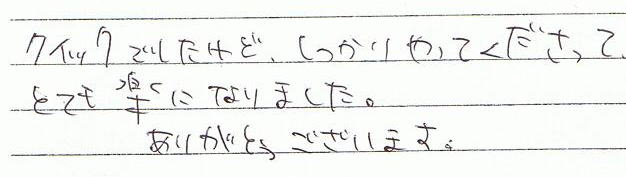 クイックでしたけど、しっかりやってくださって、
とても楽になりました。
ありがとうございます。